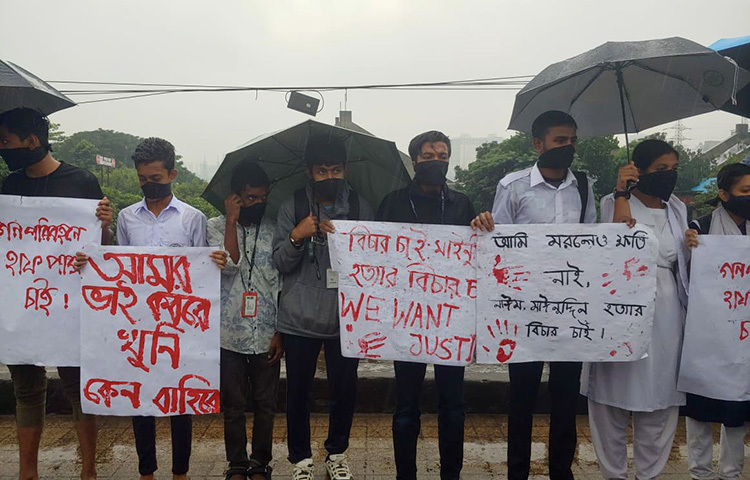 গনপরিবহনে
হাফ পাস
চাই !
আমার
ভাই কবরে
খুনি
কেন বাহিরে
বিচার চাই,
হত্যার বিচার চ
WE WANT
JUSTI
আমি মরলেও ক্ষতি
নাই,
নাঈম, মাইনুদ্দিন হত্যার
বিচার চাই !
গনপ
হাফ
চাই